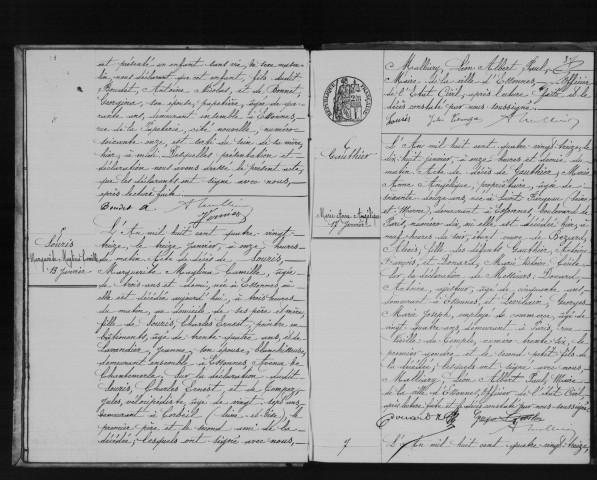 est présenté un enfant sans vie, du sexe mascu-
lin, nous déclarant que cet enfant, fils dudit
Boudet, Antoine Nicolas, et de Bonnet,
Georgina, son épouse, papetière, âgée de qua-
rante ans, demeurant ensemble à Essonnes,
rue de la Papeterie, cité nouvelle, numéro
soixante onze, est sorti du sein de sa mère,
hier, à midi. Desquelles présentation et
déclaration nous avons dressé le présent acte,
que les déclarants ont signé avec nous,
après lecture faite.
Boudet A.
7
Souris
Marguerite Magléna Camille
13 Janvier
L'An mil huit cent quatre vingt
treize, le treize Janvier, à onze heures
du matin. Acte de décès de Souris,
Marguerite Magléna Camille, âgée
de trois ans et demi, née à Essonnes où
elle est décédée aujourd'hui, à trois heures
du matin, au domicile de ses père et mère,
fille de Souris, Charles Ernest, peintre en
bâtiments, âgé de trente quatre ans, et de
Lavandier, Jeanne, son épouse, blanchisseuse,
demeurant ensemble à Essonnes, Avenue de
Chantemerle. Sur la déclaration dudit
Souris, Charles Ernest, et de
Jules, vélocipédiste, âgé de vingt sept ans,
demeurant à Corbeil (Seine-et-Oise), le
premier père et le second ami de la
décédée; lesquels ont signé avec nous,
Malliury, Léon Albert Paul,
Maire de la ville d'Essonnes, Officier
de l'Etat Civil, après lecture faite et le
décès constaté par nous soussigné.
Souris
RÉPUBLIQUE FRANÇAISE
Gauthier
Marie Anne Angélique
17 Janvier
L'An mil huit cent quatre vingt treize, le
dix huit janvier, à onze heures et demie du
matin. Acte de décès de Gauthier, Marie
Anne Angélique, propriétaire, âgée de
soixante douze ans, née à Saint Fargeau (Seine
et Marne), demeurant à Essonnes, boulevard de
Paris, numéro dix, où elle est décédée hier, à
heures du soir, veuve de Bezard,
Alexis, fille des défunts Gauthier, Antoine
François, et Donard, Marie
Sur la déclaration de Messieurs Donard,
Antoine, ajusteur, âgé de cinquante ans,
demeurant à Essonnes, et Georges
Marie Joseph, employé de commerce, âgé de
vingt quatre ans, demeurant à Paris, rue
Vieille du Temple, numéro trente six, le
premier gendre et le second petit fils de
la décédée; lesquels ont signé avec nous,
Malliury, Léon Albert Paul, Maire
de la ville d'Essonnes, Officier de l'Etat Civil,
après lecture faite et le décès constaté par nous soussigné.
7
L'An mil huit cent quatre vingt treize,